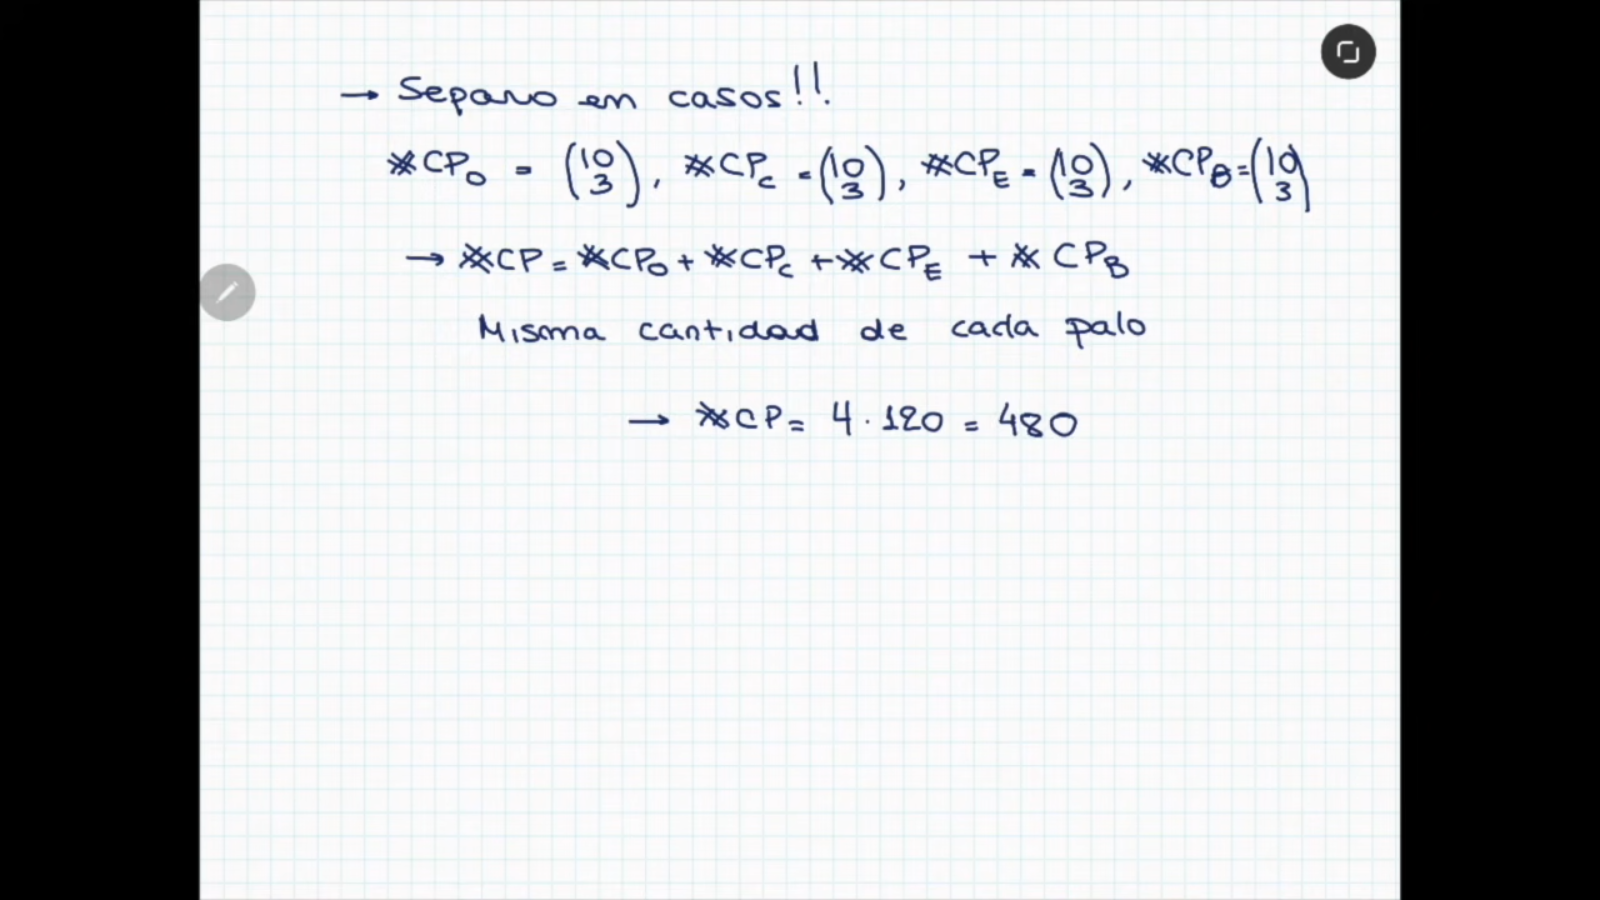 → Separo en casos!!
#CP_O = (10 3), #CP_C = (10 3), #CP_E = (10 3), #CP_B = (10 3)
→ #CP = #CP_O + #CP_C + #CP_E + #CP_B
Misma cantidad de cada palo
→ #CP = 4 · 120 = 480